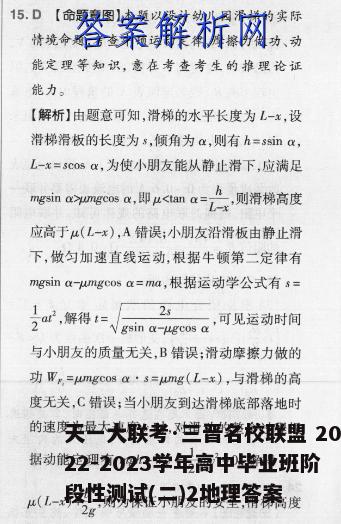 15. D 【命题意图】本题以设计幼儿园滑梯的实际
答案解析网
情境命题,考查 运 律、摩擦力做功、动
能定理等知识,意在考查考生的推理论证
能力。
【解析】由题意可知,滑梯的水平长度为 L-x,设
滑梯滑板的长度为 s,倾角为 α,则有 h=ssin α,
L-x=scos α,为使小朋友能从静止滑下,应满足
mgsin α>μmgcos α,即 μ<tan α=h/(L-x),则滑梯高度
应高于 μ(L-x),A 错误;小朋友沿滑板由静止滑
下,做匀加速直线运动,根据牛顿第二定律有
mgsin α-μmgcos α=ma,根据运动学公式有 s=
1/2 at²,解得 t=√(2s/(gsin α-μgcos α)),可见运动时间
与小朋友的质量无关,B 错误;滑动摩擦力做的
功 W_{F_f}=μmgcos α·s=μmg(L-x),与滑梯的高
度无关,C 错误;当小朋友到达滑梯底部落地时
的速度为最大速度
天一大联考·三晋名校联盟 20
22-2023学年高中毕业班阶
据动能定理有
段性测试(二)2地理答案
μ(L-x)+ /2g,则为保证小朋友的安全,滑梯高度